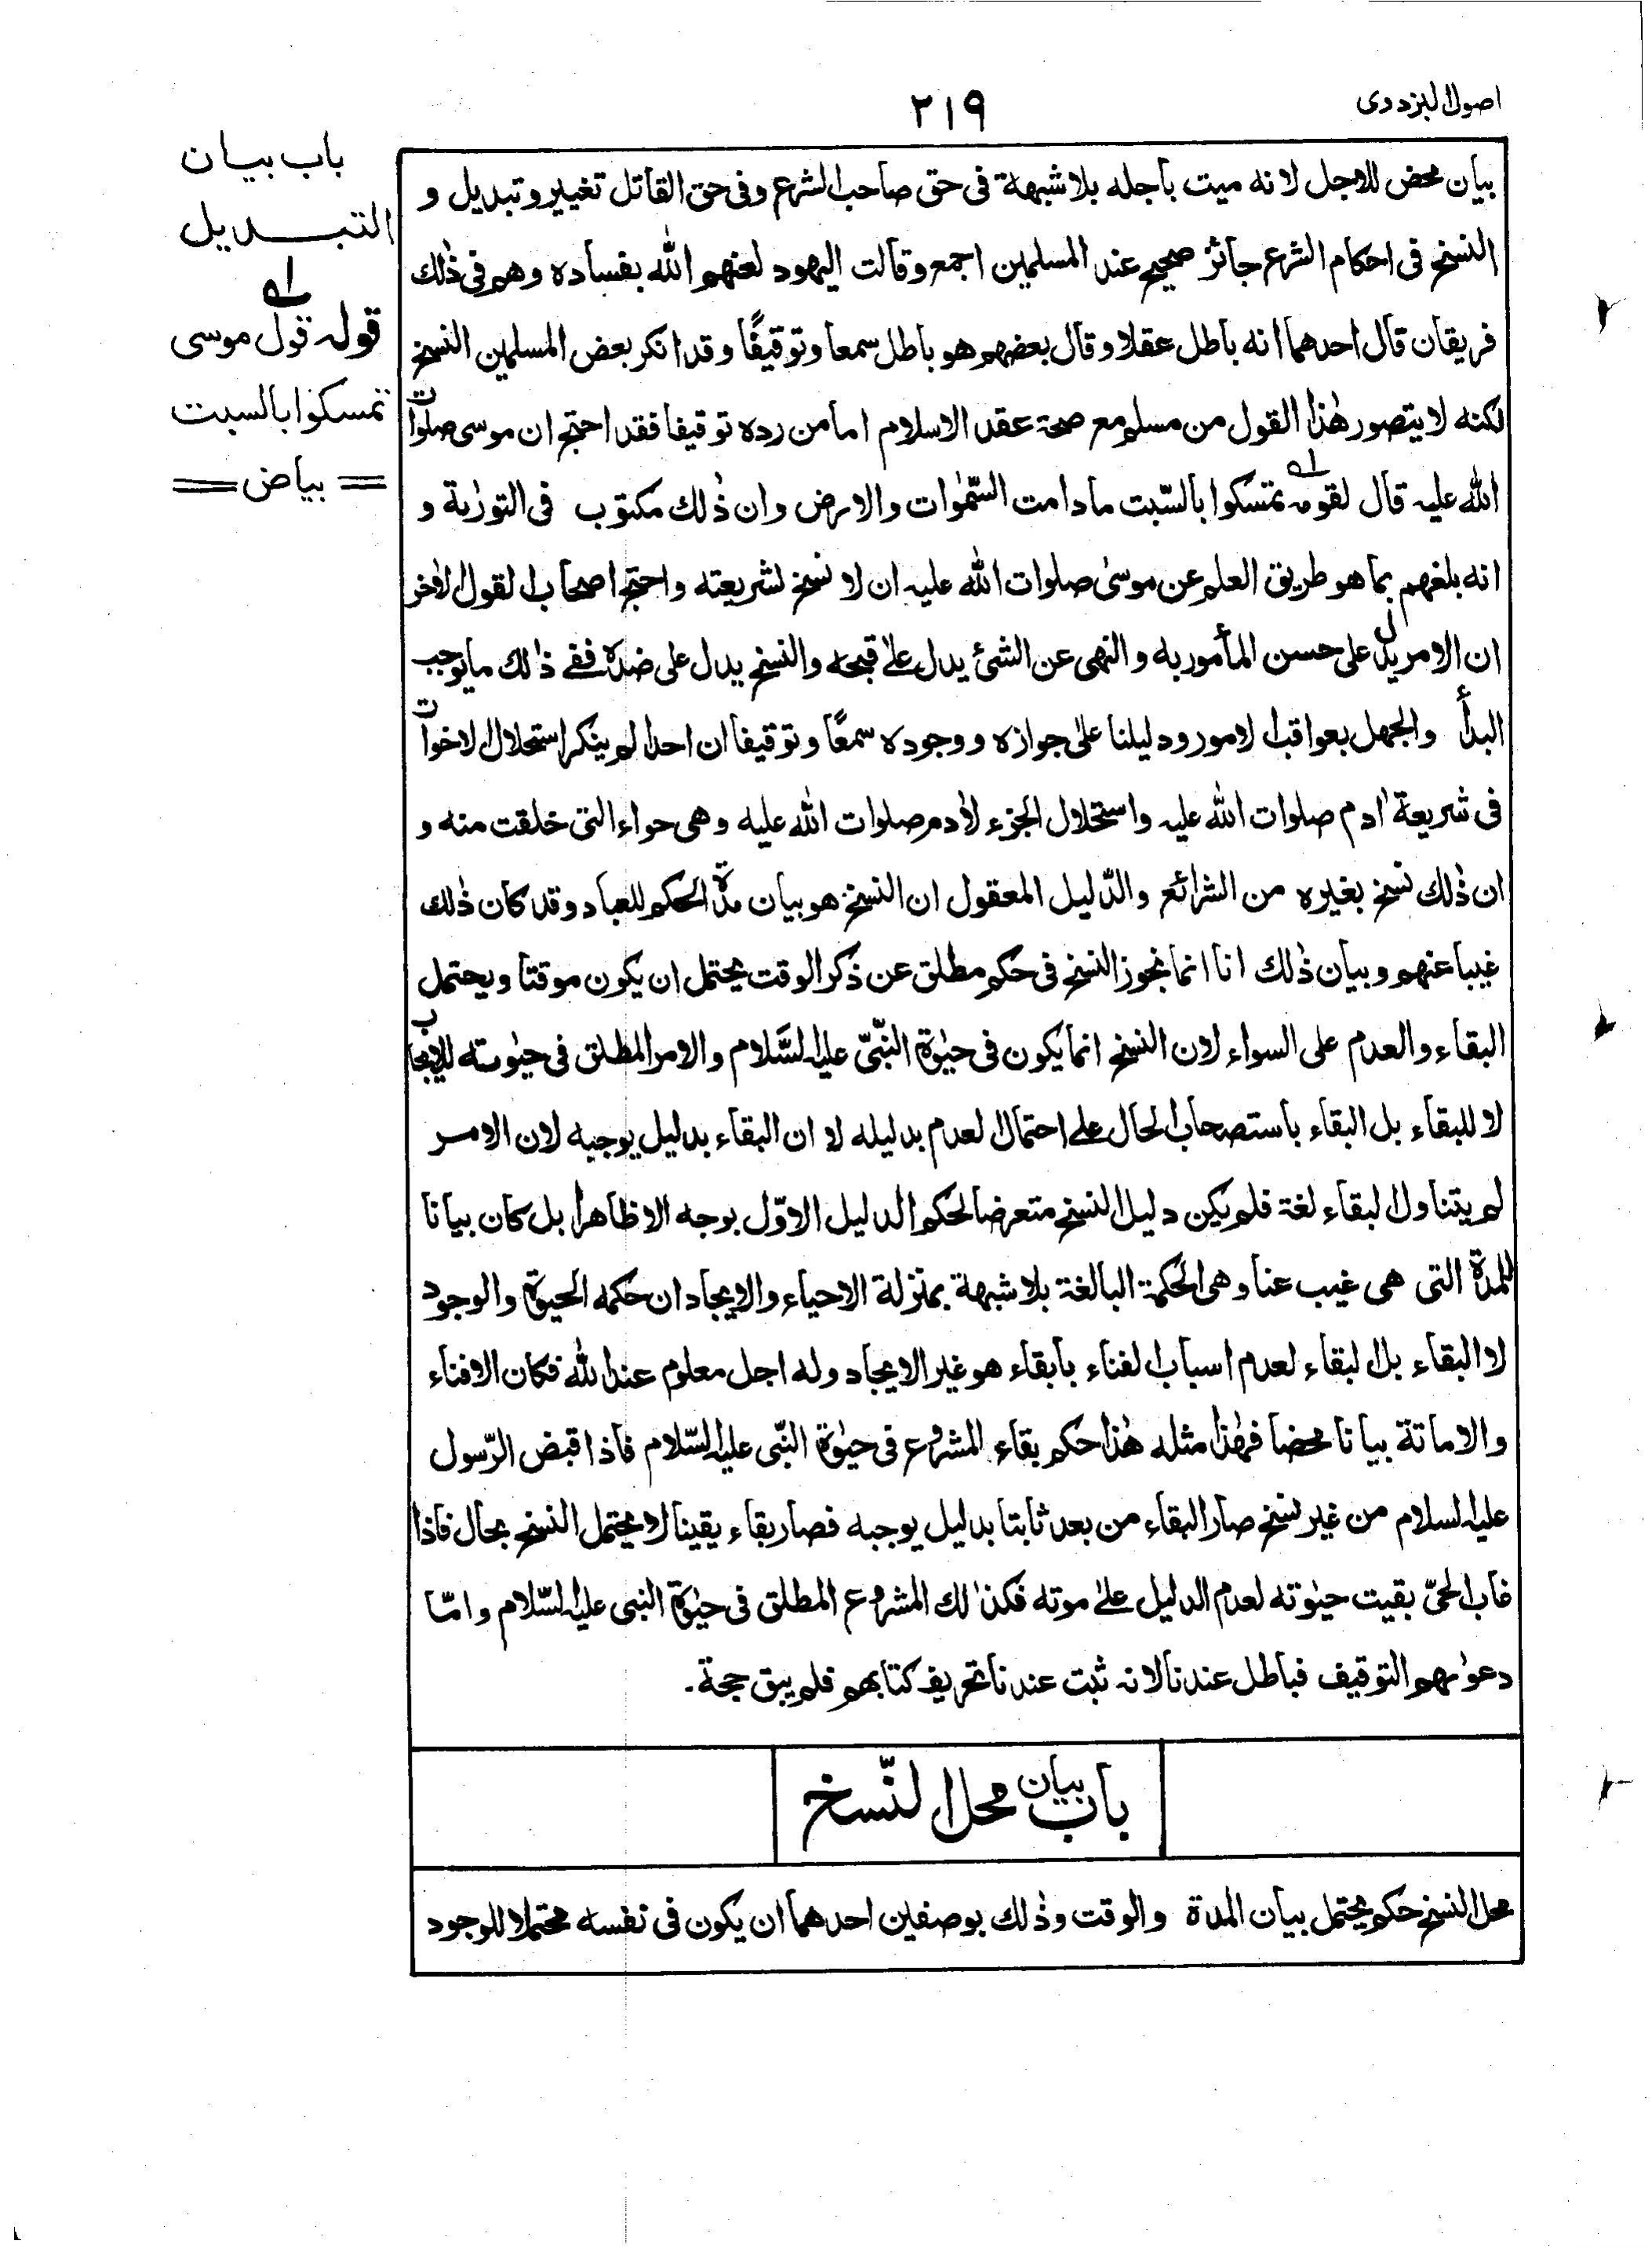 اصول البزدوى
٢١٩
باب بيان
التبديل
له
قوله قول موسى
تمسكوا بالسبت
== بياض ==
بيان محض للاجل لانه ميت بأجله بلا شبهة فى حق صاحب الشرع وفى حق القاتل تغيير وتبديل و
النسخ فى احكام الشرع جائز صحيح عند المسلمين اجمع وقالت اليهود لعنهم الله بفساده وهم فى ذٰلك
فريقان قال احدهما انه باطل عقلا وقال بعضهم هو باطل سمعا وتوقيفًا وقد انكر بعض المسلمين النسخ
لكنه لا يتصور هٰذا القول من مسلم مع صحة عقد الاسلام اما من رده توقيفا فقد احتج ان موسى صلوات
الله عليه قال لقومه له تمسكوا بالسّبت ما دامت السّمٰوات والارض وان ذٰلك مكتوب فى التورٰية و
انه بلغهم بما هو طريق العلم عن موسىٰ صلوات الله عليه ان لا نسخ لشريعته واحتج اصحاب القول الاٰخر
ان الامر يدل على حسن المأمور به والنهى عن الشئ يدل علىٰ قبحه والنسخ يدل على ضده ففے ذٰلك ما يوجب
البدأ والجهل بعواقب الامور ودليلنا علىٰ جوازه ووجوده سمعًا وتوقيفا ان احدا لم ينكر استحلال الاخوات
فى شريعة اٰدم صلوات الله عليه واستحلال الجزء لاٰدم صلوات الله عليه وهى حواء التى خلقت منه و
ان ذٰلك نسخ بغيره من الشرائع والدّليل المعقول ان النسخ هو بيان مدة الحكم للعباد وقد كان ذٰلك
غيبا عنهم وبيان ذٰلك انا انما نجوز النسخ فى حكم مطلق عن ذكر الوقت يحتمل ان يكون موقتا ويحتمل
البقاء والعدم على السواء لان النسخ انما يكون فى حيٰوة النّبىّ عليه السَّلام والامر المطلق فى حيٰوته للايجاب
لا للبقاء بل البقاء باستصحاب الحال علے احتمال العدم بدليله لا ان البقاء بدليل يوجبه لان الامر
لم يتناول البقاء لغة فلم يكن دليل النسخ متعرضا لحكم الدليل الاوّل بوجه الا ظاهرا بل كان بيانا
للمدة التى هى غيب عنا وهى الحكمة البالغة بلا شبهة بمنزلة الاحياء والايجاد ان حكمه الحيوة والوجود
لا البقاء بل البقاء لعدم اسباب الفناء بابقاء هو غير الايجاد وله اجل معلوم عند الله فكان الافناء
والاماتة بيانا محضا فهٰذا مثله هٰذا حكم بقاء المشروع فى حيٰوة النّبى عليه السّلام فاذا قبض الرّسول
عليه السلام من غير نسخ صار البقاء من بعد ثابتا بدليل يوجبه فصار بقاء يقينا لا يحتمل النسخ بحال فاذا
غاب الحىّ بقيت حيٰوته لعدم الدليل علىٰ موته فكذٰلك المشروع المطلق فى حيٰوة النبى عليه السّلام وامّا
دعوٰىهم التوقيف فباطل عندنا لانه ثبت عندنا تحريف كتابهم فلم يبق حجة۔
باب بيان محل النّسخ
محل النسخ حكم يحتمل بيان المدة والوقت وذٰلك بوصفين احدهما ان يكون فى نفسه محتملا للوجود